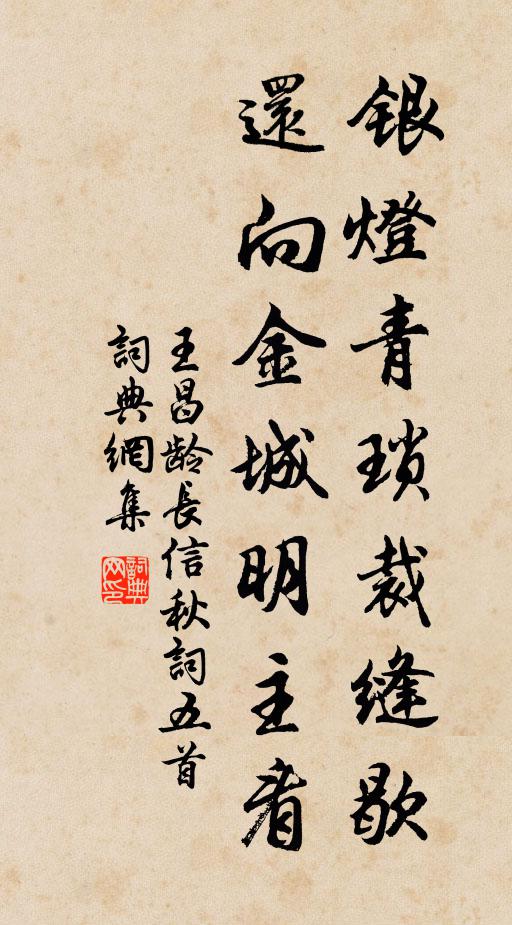 銀燈青瑣裁縫歇
還向金城明主看
王昌龄長信秋詞五首
詞典網集
詞典网印